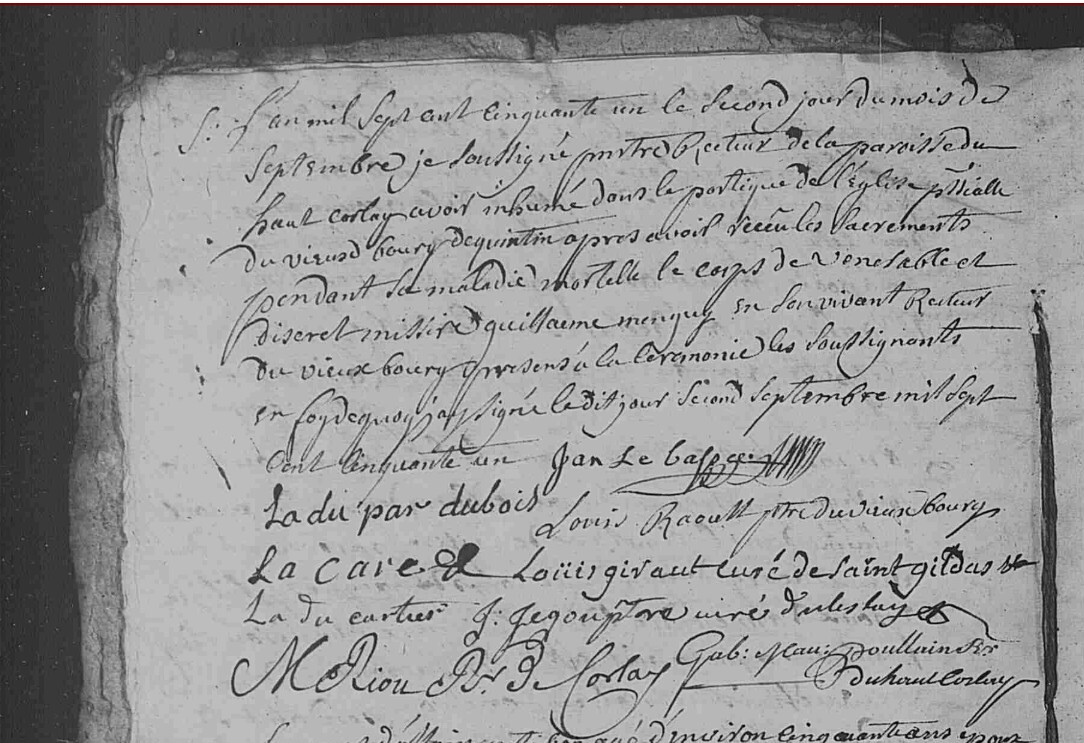 S: L'an mil Sept cent Cinquante un le Second jour du mois de
Septembre je Soussigné prttre Recteur de la paroisse du
haut Corlay avoir inhumé dans le portique de l'Église pssialle
du vieux bourg de quintin apres avoir recëu les Sacrements
pendant sa maladie mortelle le corps de Venerable et
discret missire guillaeme menguy en son vivant Recteur
du vieux bourg presens a la Ceremonie les soussignants
en foy de quoy j'ay signé le dit jour Second Septembre mil Sept
Cent Cinquante un Jan Le
La du par dubois Louis Raoult ptre du vieux bourg
La Care Loüis giraut curé de saint gildas
La du J: Jegou ptre curé
M Riou Rr De Corlay Gab: Mau: poullain Rr
du haut Corlay
d'environ Cinquante ans